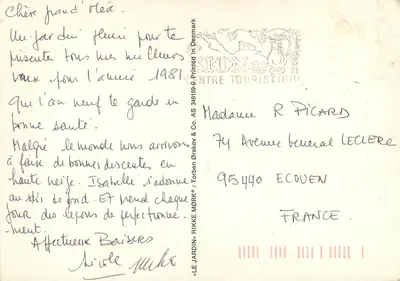 Chère grand'Mère.
Un jardin fleuri pour te
présenter tous mes meilleurs
vœux pour l'année 1981.
Que l'an neuf te garde en
bonne santé.
Malgré le monde nous arrivons
à faire de bonnes descentes en
haute neige. Isabelle s'adonne
au ski de fond. Et prend chaque
jour des leçons de perfectionne-
ment.
Affectueux Baisers
Nicole
«LE JARDIN» RIKKE MØRK® / Torben Ørskov & Co. AS 348159-0 Printed in Denmark
SION
CENTRE TOURISTIQUE
Madame R PICARD
74 Avenue General LECLERC
95440 ECOUEN
FRANCE.